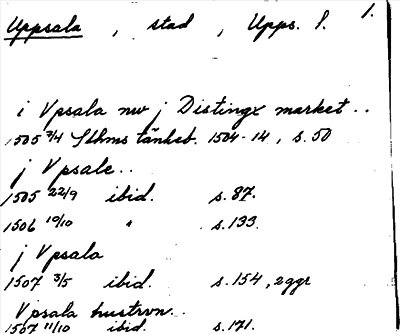 Uppsala, stad, Upps. l. 1.
i Vpsala nw j Distingx market..
1505 3/4 Sthms tänkeb. 1504-14, s. 50
j Vpsale..
1505 22/9 ibid. s. 87.
1506 19/10 " s. 133.
j Vpsala
1507 3/5 ibid. s. 154, 2ggr
Vpsala hustrvn..
1507 11/10 ibid. s. 171.